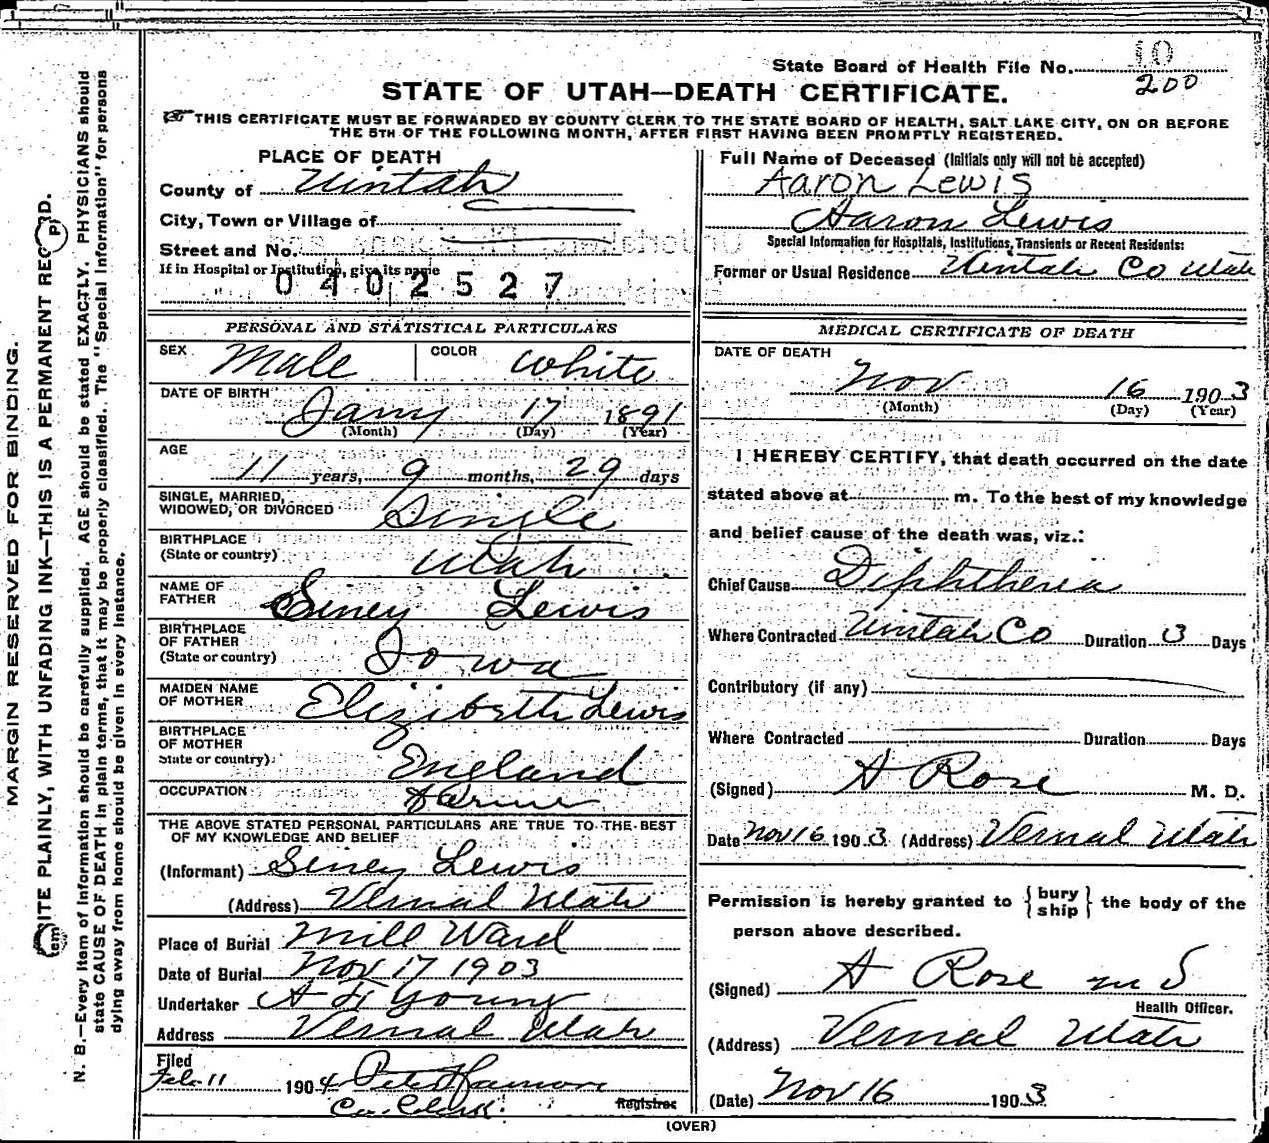 State Board of Health File No. 10
200
STATE OF UTAH—DEATH CERTIFICATE.
THIS CERTIFICATE MUST BE FORWARDED BY COUNTY CLERK TO THE STATE BOARD OF HEALTH, SALT LAKE CITY, ON OR BEFORE
THE 5TH OF THE FOLLOWING MONTH, AFTER FIRST HAVING BEEN PROMPTLY REGISTERED.
PLACE OF DEATH
County of Uintah
City, Town or Village of
Street and No.
If in Hospital or Institution, give its name
0402527
Full Name of Deceased (Initials only will not be accepted)
Aaron Lewis
Aaron Lewis
Special Information for Hospitals, Institutions, Transients or Recent Residents:
Former or Usual Residence Uintah Co Utah
PERSONAL AND STATISTICAL PARTICULARS
SEX Male COLOR White
DATE OF BIRTH
Jany 17 1891
(Month) (Day) (Year)
AGE
11 years, 9 months, 29 days
SINGLE, MARRIED,
WIDOWED, OR DIVORCED Single
BIRTHPLACE
(State or country) Utah
NAME OF
FATHER Siney Lewis
BIRTHPLACE
OF FATHER
(State or country) Iowa
MAIDEN NAME
OF MOTHER Elizibeth Lewis
BIRTHPLACE
OF MOTHER
State or country) England
OCCUPATION
THE ABOVE STATED PERSONAL PARTICULARS ARE TRUE TO THE BEST
OF MY KNOWLEDGE AND BELIEF
(Informant) Siney Lewis
(Address) Vernal Utah
Place of Burial Mill Ward
Date of Burial Nov 17 1903
Undertaker Young
Address Vernal Utah
Filed
Feb 11 1904
Co. Clerk. Registrar
MEDICAL CERTIFICATE OF DEATH
DATE OF DEATH
Nov 16 1903
(Month) (Day) (Year)
I HEREBY CERTIFY, that death occurred on the date
stated above at m. To the best of my knowledge
and belief cause of the death was, viz.:
Chief Cause Diphtheria
Where Contracted Uintah Co Duration 3 Days
Contributory (if any)
Where Contracted Duration Days
(Signed) A Rose M. D.
Date Nov 16 1903 (Address) Vernal Utah
Permission is hereby granted to { bury ship } the body of the
person above described.
(Signed) A Rose
Health Officer.
(Address) Vernal Utah
(Date) Nov 16 1903
(OVER)
MARGIN RESERVED FOR BINDING.
PLAINLY, WITH UNFADING INK—THIS IS A PERMANENT
N. B.—Every item of information should be carefully supplied. AGE should be stated EXACTLY. PHYSICIANS should
state CAUSE OF DEATH in plain terms, that it may be properly classified. The "Special Information" for persons
dying away from home should be given in every instance.